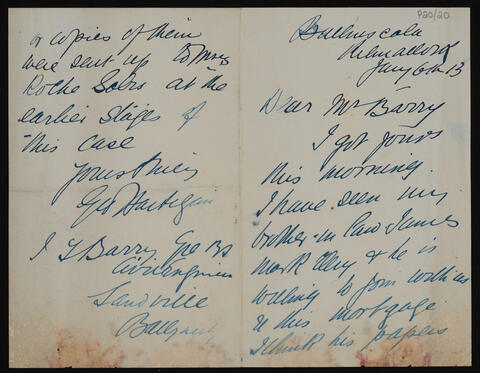 P20/20
Ballinscala
Kilmallock
Jany 6th 13
Dear Mr Barry
I got yours
this morning.
I have seen my
brother-in-law James
Mark & he is
willing to join with us
in this mortgage
I think his papers
or copies of them
were sent up to Messrs
Roche Solrs at the
earlier stages of
this case
Yours truly
Geo Hartigan
J Barry Esq BE
Civil Engineer
Sandville